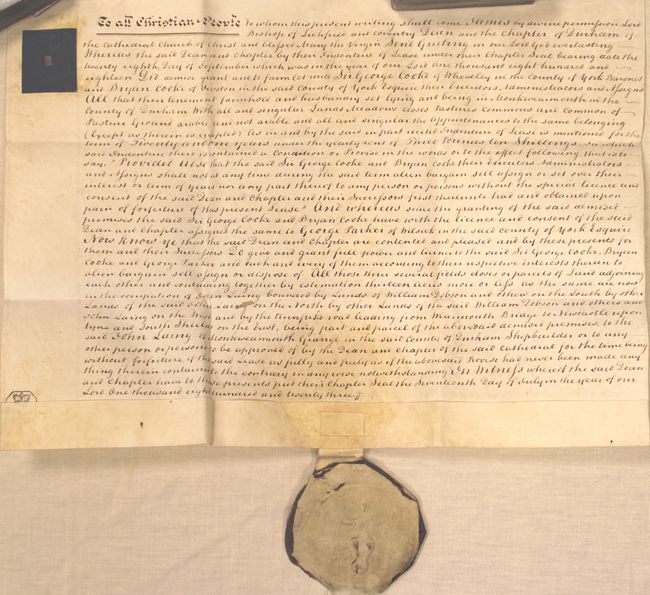 To all Christian People to whom this present writing shall come James by divine permission Lord
Bishop of Lichfield and Coventry Dean and the Chapter of Durham of
the Cathedral Church of Christ and blessed Mary the Virgin Send Greeting in our Lord God everlasting
Whereas the said Dean and Chapter by their Indenture of Lease under their Chapter Seal bearing date the
twenty eighth Day of September which was in the year of our Lord one thousand eight hundred and
eighteen Did demise grant and to farm let unto Sir George Cooke of Wheatley in the County of York Baronet
and Bryan Cooke of Owston in the said County of York Esquire their Executors Administrators and Assigns
All that their tenement farmhold and husbandry set lying and being in Monkwearmouth in the
County of Durham With all and singular Lands Meadows Leases Pastures Commons and Common of
Pasture Ground arable and not arable and all and singular the Appurtenances to the same belonging
(Except as therein is excepted) As in and by the said in part recited Indenture of Lease is mentioned for the
term of Twenty and one years under the yearly rent of Three Pounds ten Shillings In which
said Indenture there is contained a Condition or Proviso in the words or to the effect following, that is to
say, "Provided that the said Sir George Cooke and Bryan Cooke their Executors Administrators
and Assigns shall not at any time during the said term alien bargain sell assign or set over their
interest or term of years nor any part thereof to any person or persons without the special licence and
consent of the said Dean and Chapter and their Successors first thereunto had and obtained upon
pain of forfeiture of this present Lease" And whereas since the granting of the said demised
premises the said Sir George Cooke and Bryan Cooke have with the licence and consent of the said
Dean and Chapter assigned the same to George Parker of in the said County of York Esquire
Now know ye that the said Dean and Chapter are contented and pleased and by these presents for
them and their Successors Do give and grant full power and licence to the said Sir George Cooke, Bryan
Cooke and George Parker and each and every of them according to their respective interests therein to
alien bargain sell assign or dispose of All those three several fields closes or parcels of Land adjoining
each other and containing together by estimation thirteen acres more or less as the same are now
in the occupation of John Laing bounded by Lands of William Dobson and others on the South by other
Lands of the said John Laing on the North by other Lands of the said William Dobson and others and
John Laing on the West and by the turnpike road leading from Wearmouth Bridge to Newcastle upon
Tyne and South Shields on the East, being part and parcel of the abovesaid demised premises, to the
said John Laing of Monkwearmouth Grange in the said County of Durham Shipbuilder or to any
other person or persons to be approved of by the Dean and Chapter of the said Cathedral for the time being
without forfeiture of the said Lease as fully and freely as if the abovesaid Proviso had never been made any
thing therein contained to the contrary in any wise notwithstanding In Witness whereof the said Dean
and Chapter have to these presents put their Chapter Seal the Seventeenth Day of July in the year of our
Lord One thousand eight hundred and twenty three